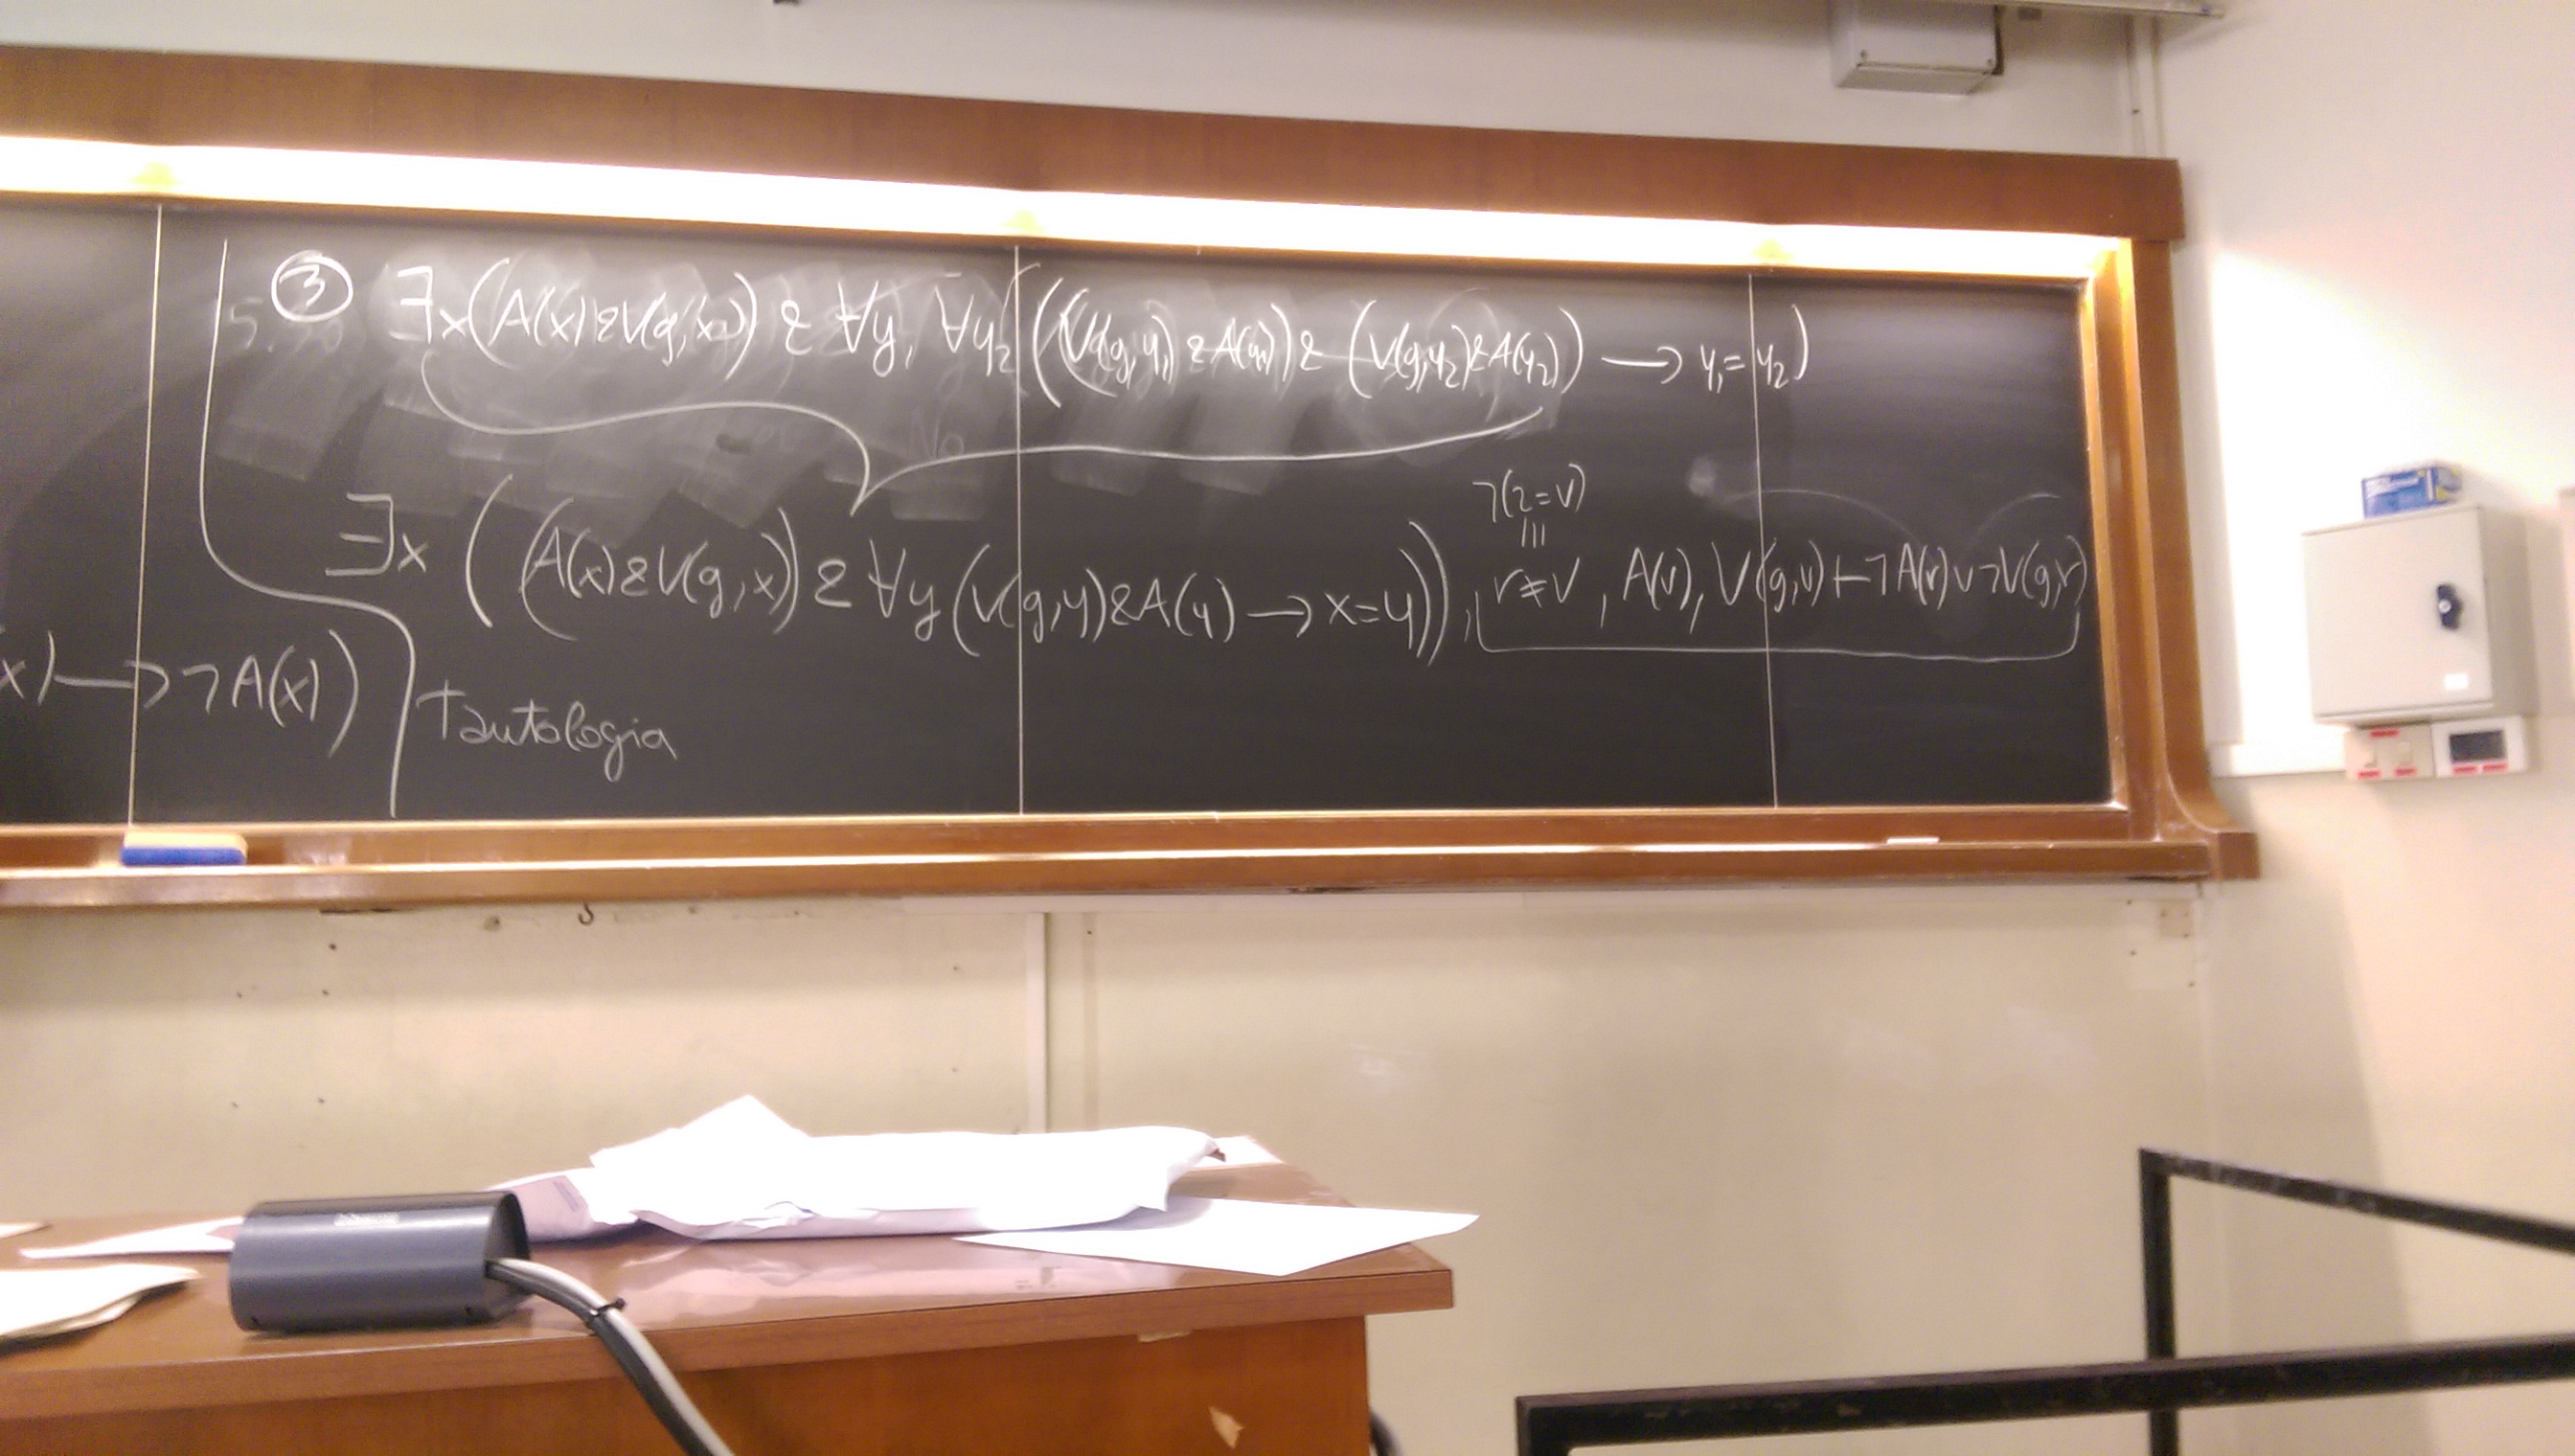 ③ ∃x(A(x)&V(g,x)) & ∀y₁ ∀y₂((V(g,y₁)&A(y₁))&(V(g,y₂)&A(y₂)) → y₁=y₂)
¬(r=v)
≡
∃x((A(x)&V(g,x))&∀y(V(g,y)&A(y)→x=y)), r≠v, A(v), V(g,v)⊢¬A(r)∨¬V(g,r)
x)→¬A(x))
Tautologia